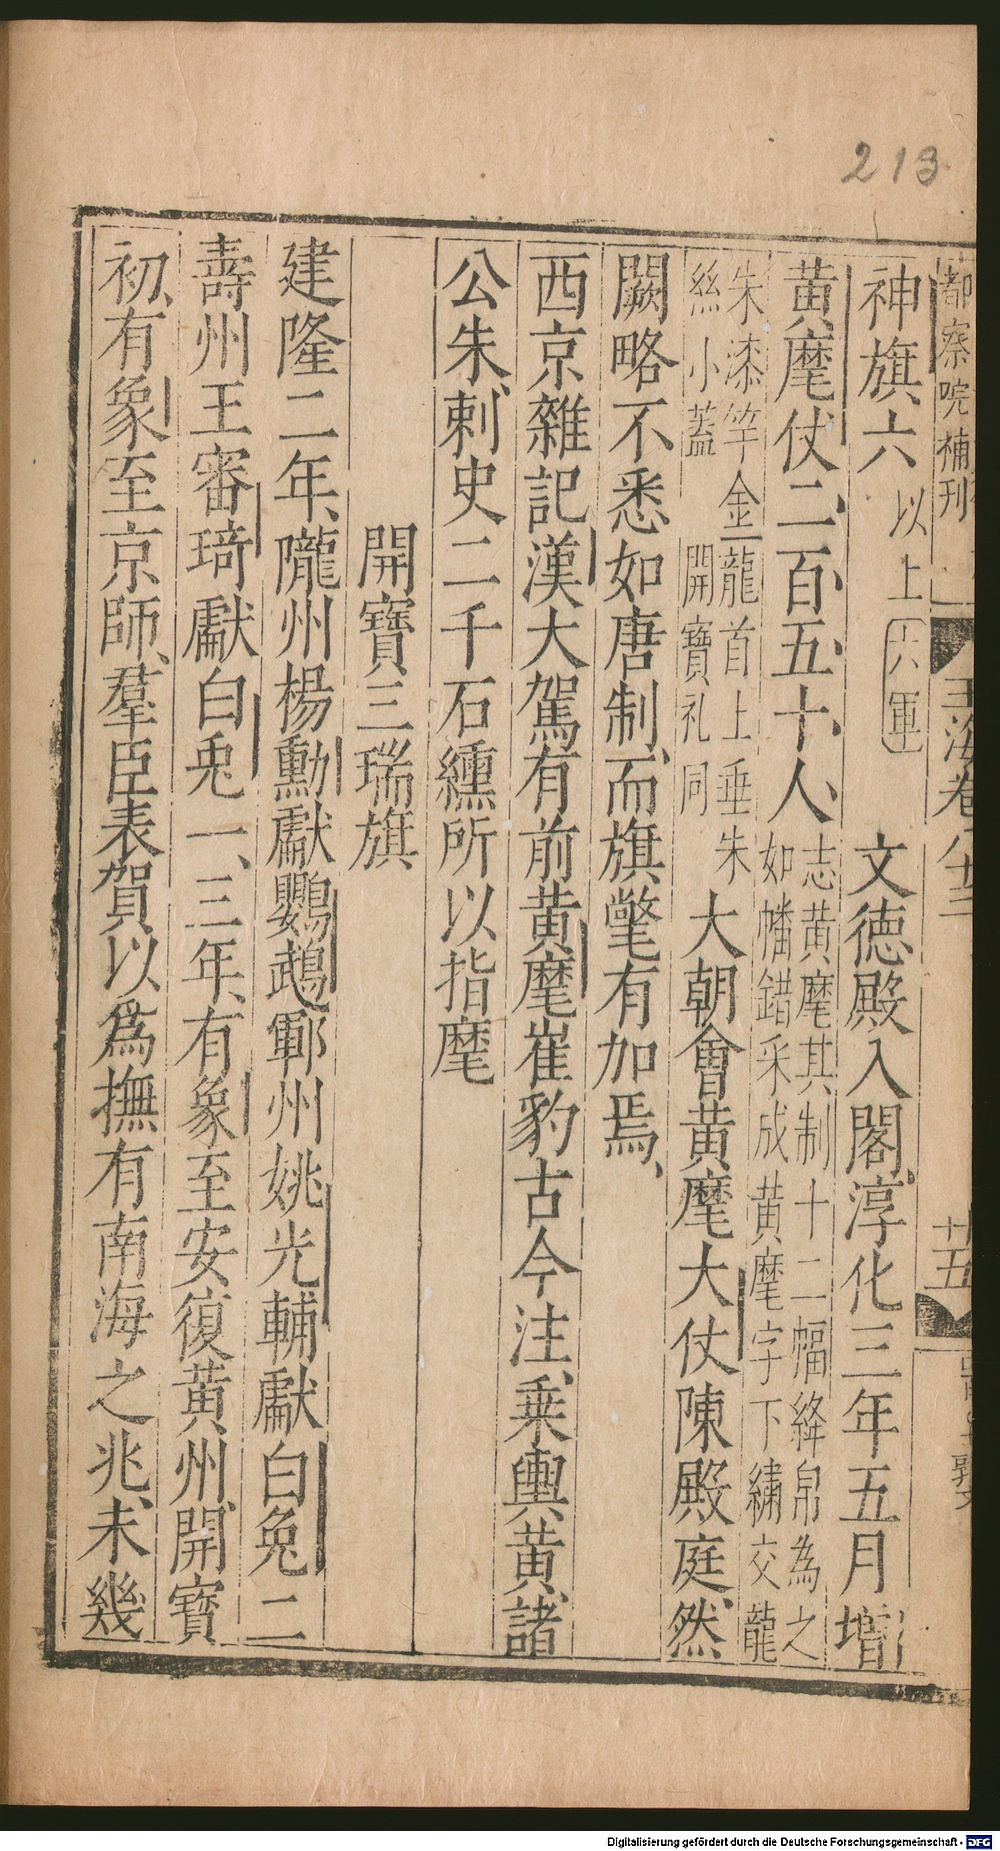 213
都察院補刊
玉海卷八十三
十五
神旗六以上六軍　文德殿入閣淳化三年五月增
黃麾仗二百五十人志黃麾其制十二幅絳帛為之
如幡錯采成黃麾字下繡交龍
朱漆竿金龍首上垂朱
絲小蓋開寶礼同大朝會黃麾大仗陳殿庭然
闕略不悉如唐制而旗氅有加焉
西京雜記漢大駕有前黃麾崔豹古今注乗輿黃諸
公朱刺史二千石纁所以指麾
開寶三瑞旗
建隆二年隴州楊勳獻鸚鵡鄆州姚光輔獻白兔二
壽州王審琦獻白兎一三年有象至安復黃州開寶
初有象至京師羣臣表賀以為撫有南海之兆未幾
Digitalisierung gefördert durch die Deutsche Forschungsgemeinschaft - DFG